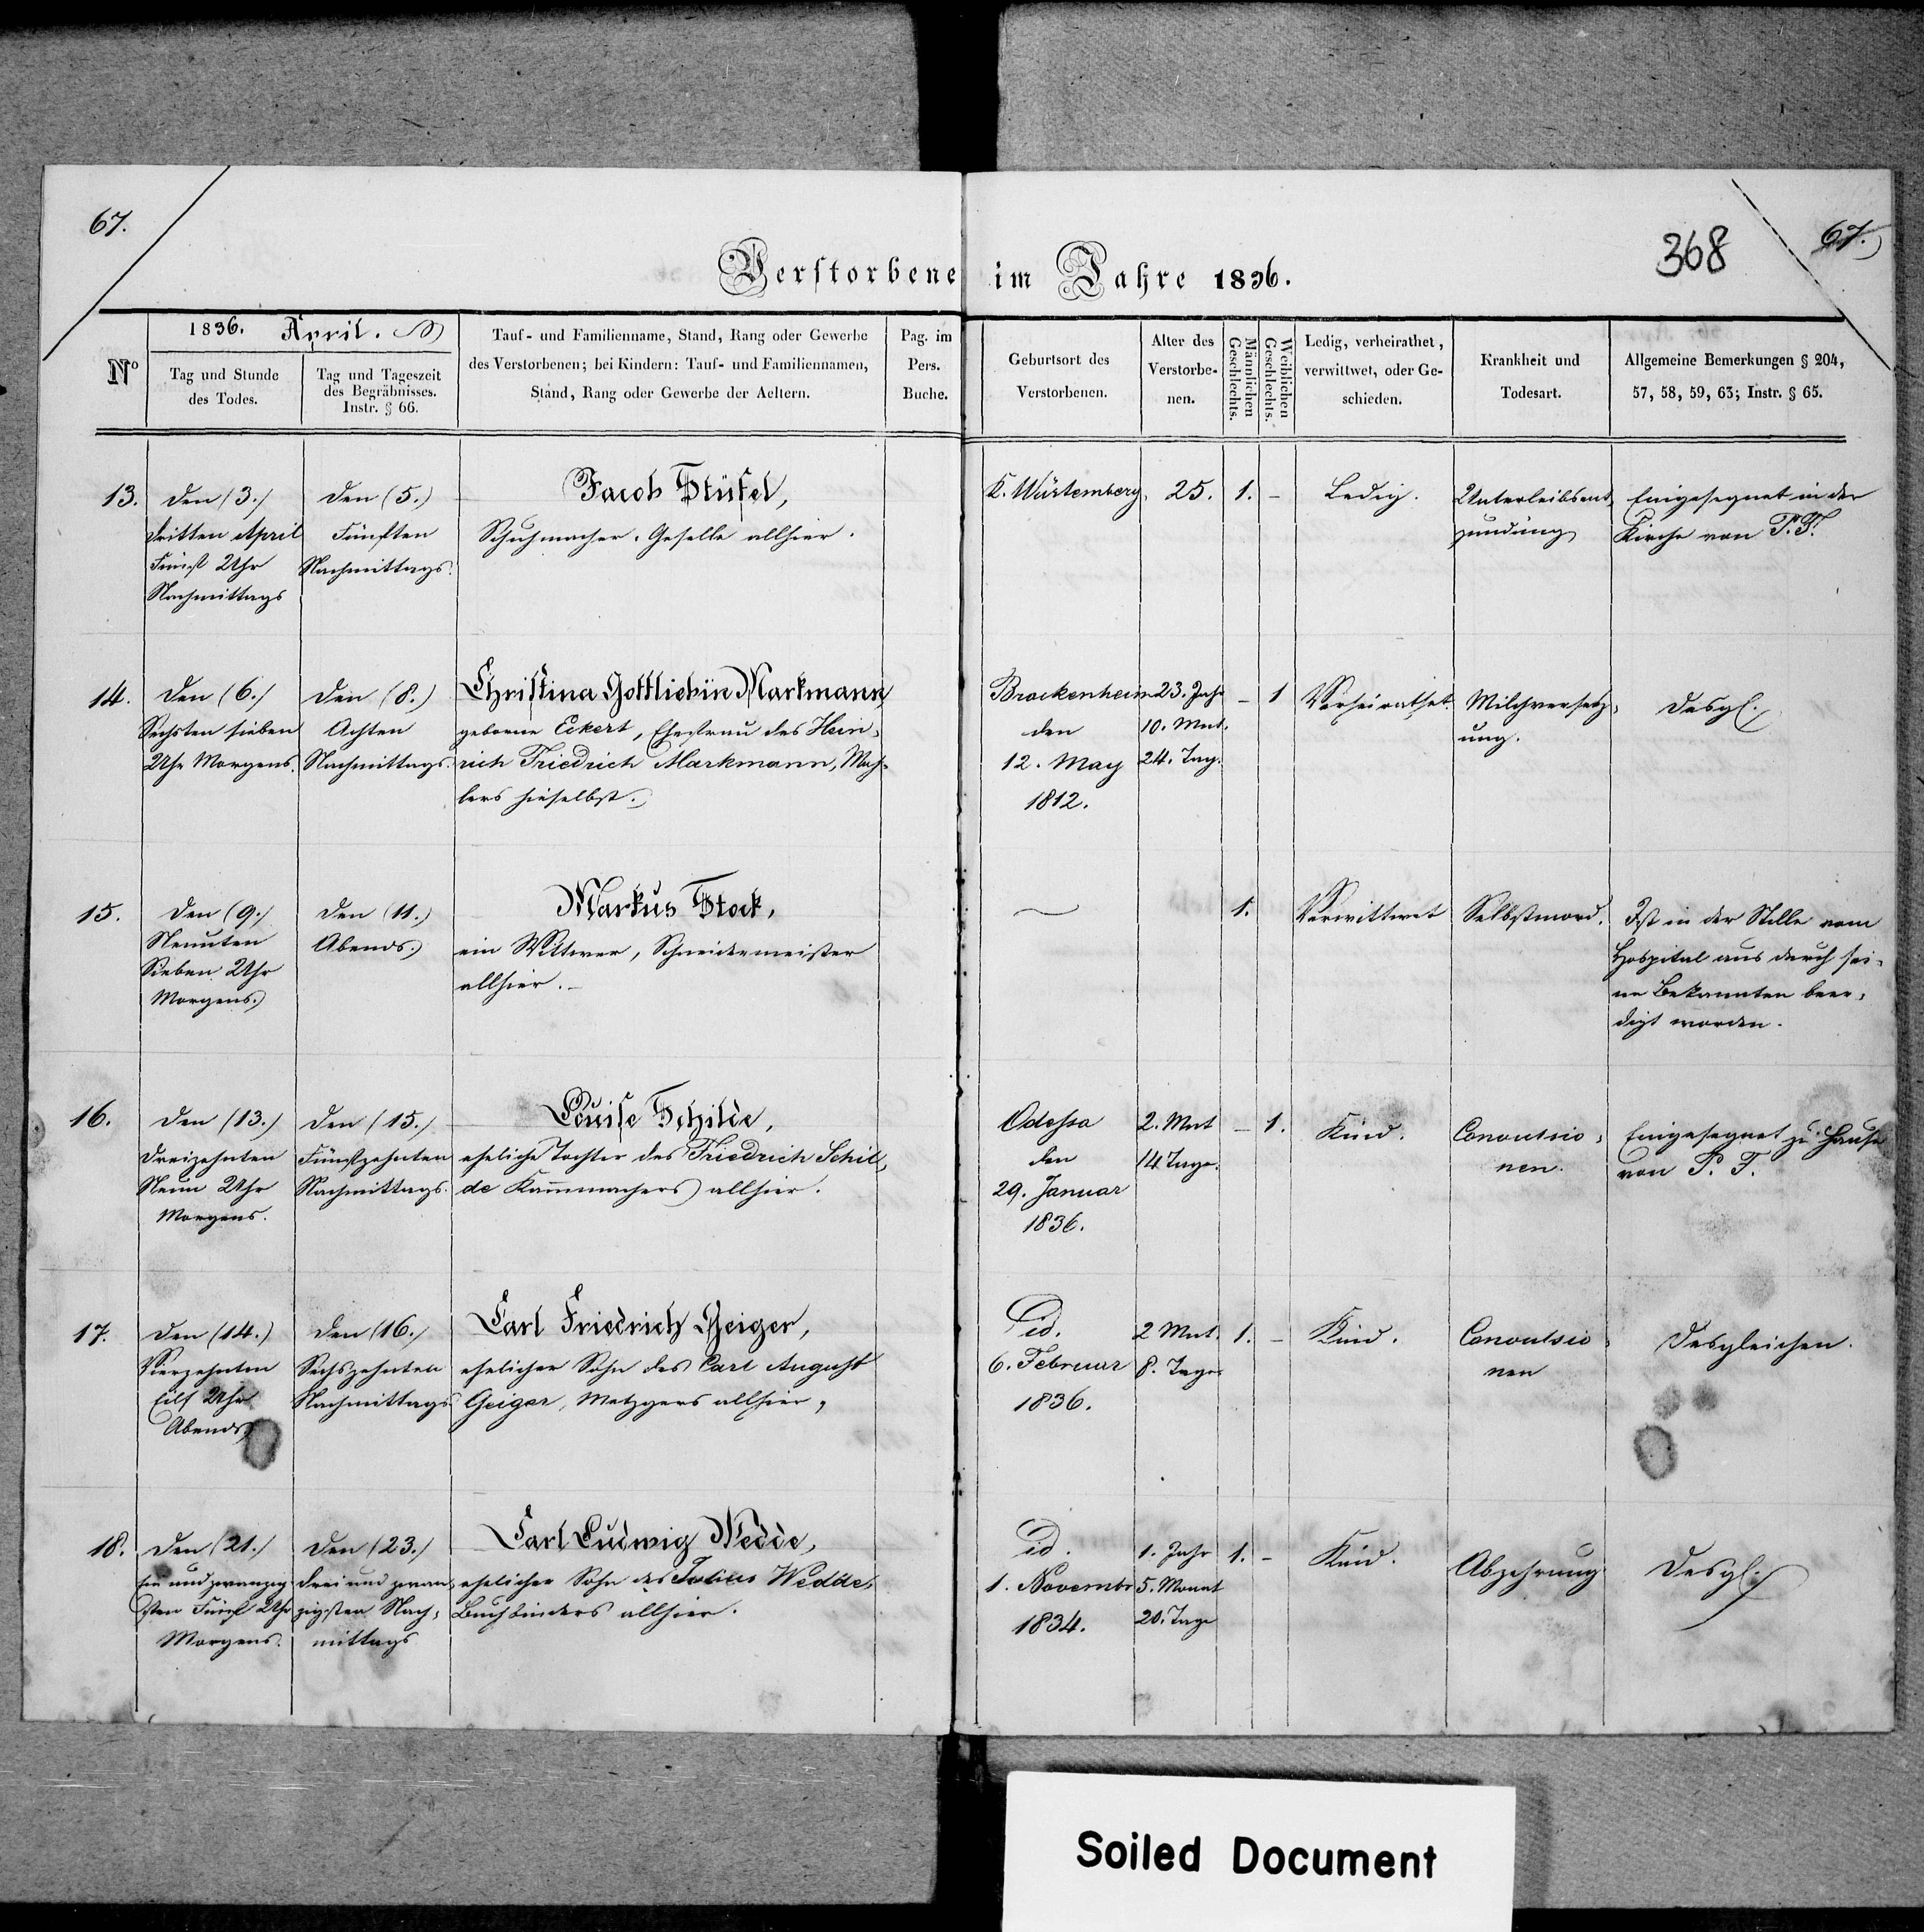 67.
368
67.
Verstorbene im Jahre 1836.
1836. April.
Nº
Tag und Stunde
des Todes.
Tag und Tageszeit
des Begräbnisses.
Instr. § 66.
Tauf- und Familienname, Stand, Rang oder Gewerbe
des Verstorbenen; bei Kindern: Tauf- und Familiennamen,
Stand, Rang oder Gewerbe der Aeltern.
Pag. im
Pers.
Buche.
Geburtsort des
Verstorbenen.
Alter des
Verstorbe-
nen.
Männlichen
Geschlechts.
Weiblichen
Geschlechts.
Ledig, verheirathet,
verwittwet, oder Ge-
schieden.
Krankheit und
Todesart.
Allgemeine Bemerkungen § 204,
57, 58, 59, 63; Instr. § 65.
13.
den (3.)
dritten April
Fünf Uhr
Nachmittags
den (5.)
Fünften
Nachmittags.
Jacob Stüfel,
Schuhmacher-Geselle allhier.
K. Würtemberg.
25.
1.
-
Ledig.
Unterleibsent-
zündung
Eingesegnet in der
Kirche von P. F.
14.
den (6.)
Sechsten sieben
Uhr Morgens.
den (8.)
Achten
Nachmittags.
Christina Gottliebin Markmann
geborne Eckert, Ehefrau des Hein-
rich Friedrich Markmann, Mah-
lers hieselbst.
Brackenheim
den
12. May
1812.
23. Jahr
10. Mnt.
24. Tag.
-
1
Verheirathet.
Milchversetz-
ung.
desgl.
15.
den (9.)
Neunten
Sieben Uhr
Morgens.
den (11.)
Abends.
Markus Stock,
ein Wittwer, Schneidermeister
allhier.
1.
Verwittwet
Selbstmord.
Ist in der Stille vom
Hospital aus durch sei-
ne Bekannten beer-
digt worden.
16.
den (13.)
Dreizehnten
Neun Uhr
Morgens.
den (15.)
Fünfzehnten
Nachmittags.
Louise Schilde,
eheliche Tochter des Friedrich Schil-
de Kammachers allhier.
Odessa
den
29. Januar
1836.
2. Mnt
14 Tage.
-
1.
Kind.
Convulsio-
nen.
Eingesegnet zu Hause
von P. F.
17.
den (14.)
Vierzehnten
Eilf Uhr
Abends
den (16.)
Sechszehnten
Nachmittags
Carl Friedrich Geiger,
ehelicher Sohn des Carl August
Geiger, Metzgers allhier.
Eid.
6. Februar
1836.
2 Mnt.
8. Tage
1.
-
Kind.
Convulsio-
nen
desgleichen.
18.
den (21.)
Ein und zwanzig
sten Fünf Uhr
Morgens.
den (23.)
drei und zwan-
zigsten Nach-
mittags
Carl Ludwig Wedde,
ehelicher Sohn des Julius Wedde,
Buchbinders allhier.
Eid.
1. Novembr
1834.
1. Jahr
5. Monat
20. Tage
1.
-
Kind.
Abzehrung
desgl.
Soiled Document